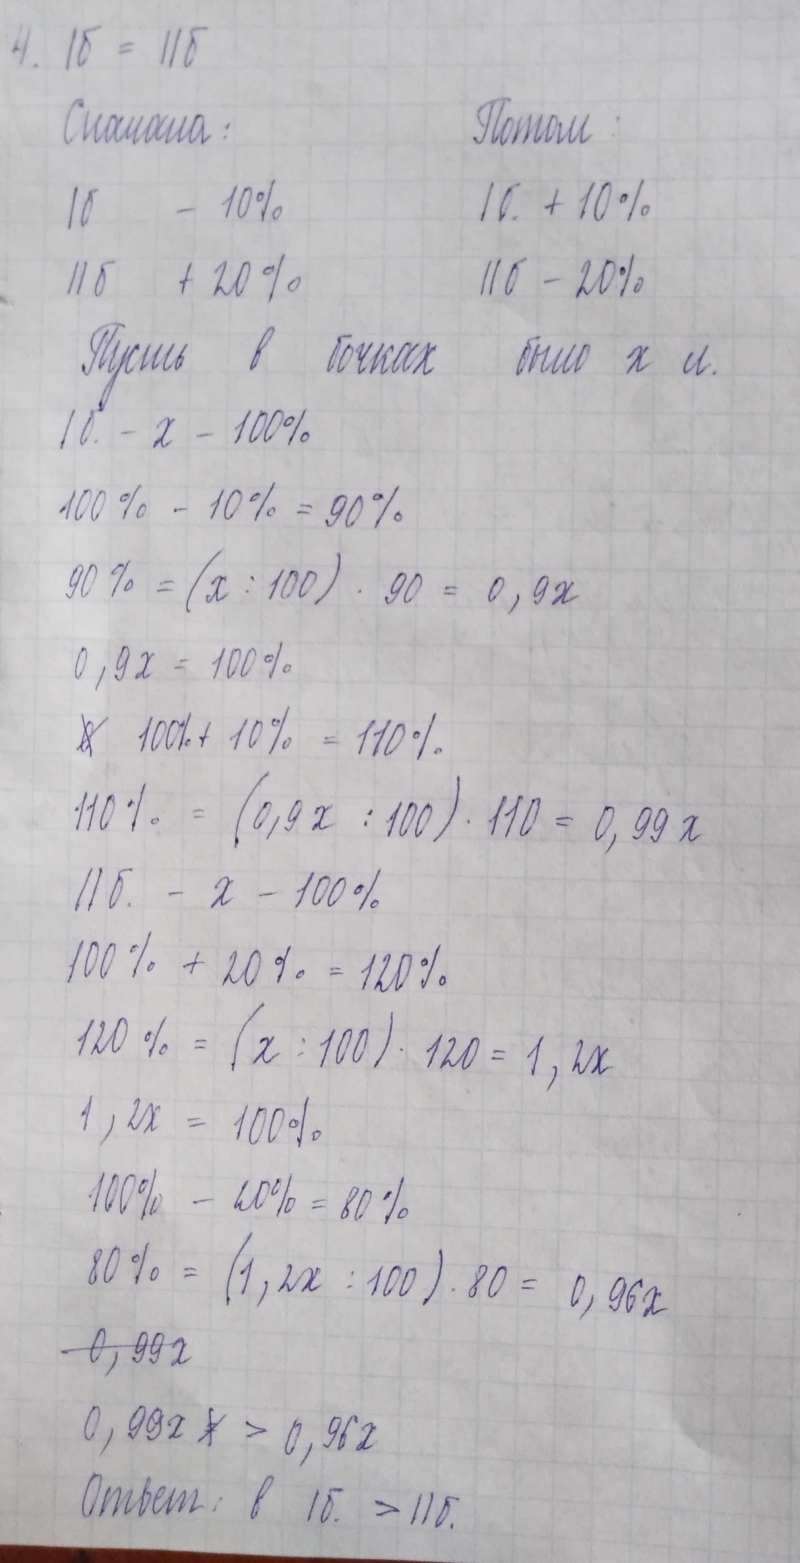 4. Iб = IIб
Сначала: Потом:
Iб - 10% Iб. + 10%
IIб + 20% IIб - 20%
Пусть в бочках было x л.
Iб. - x - 100%
100% - 10% = 90%
90% = (x : 100) · 90 = 0,9x
0,9x = 100%
100% + 10% = 110%
110% = (0,9x : 100) · 110 = 0,99x
IIб. - x - 100%
100% + 20% = 120%
120% = (x : 100) · 120 = 1,2x
1,2x = 100%
100% - 20% = 80%
80% = (1,2x : 100) · 80 = 0,96x
0,99x
0,99x > 0,96x
Ответ: в Iб. > IIб.